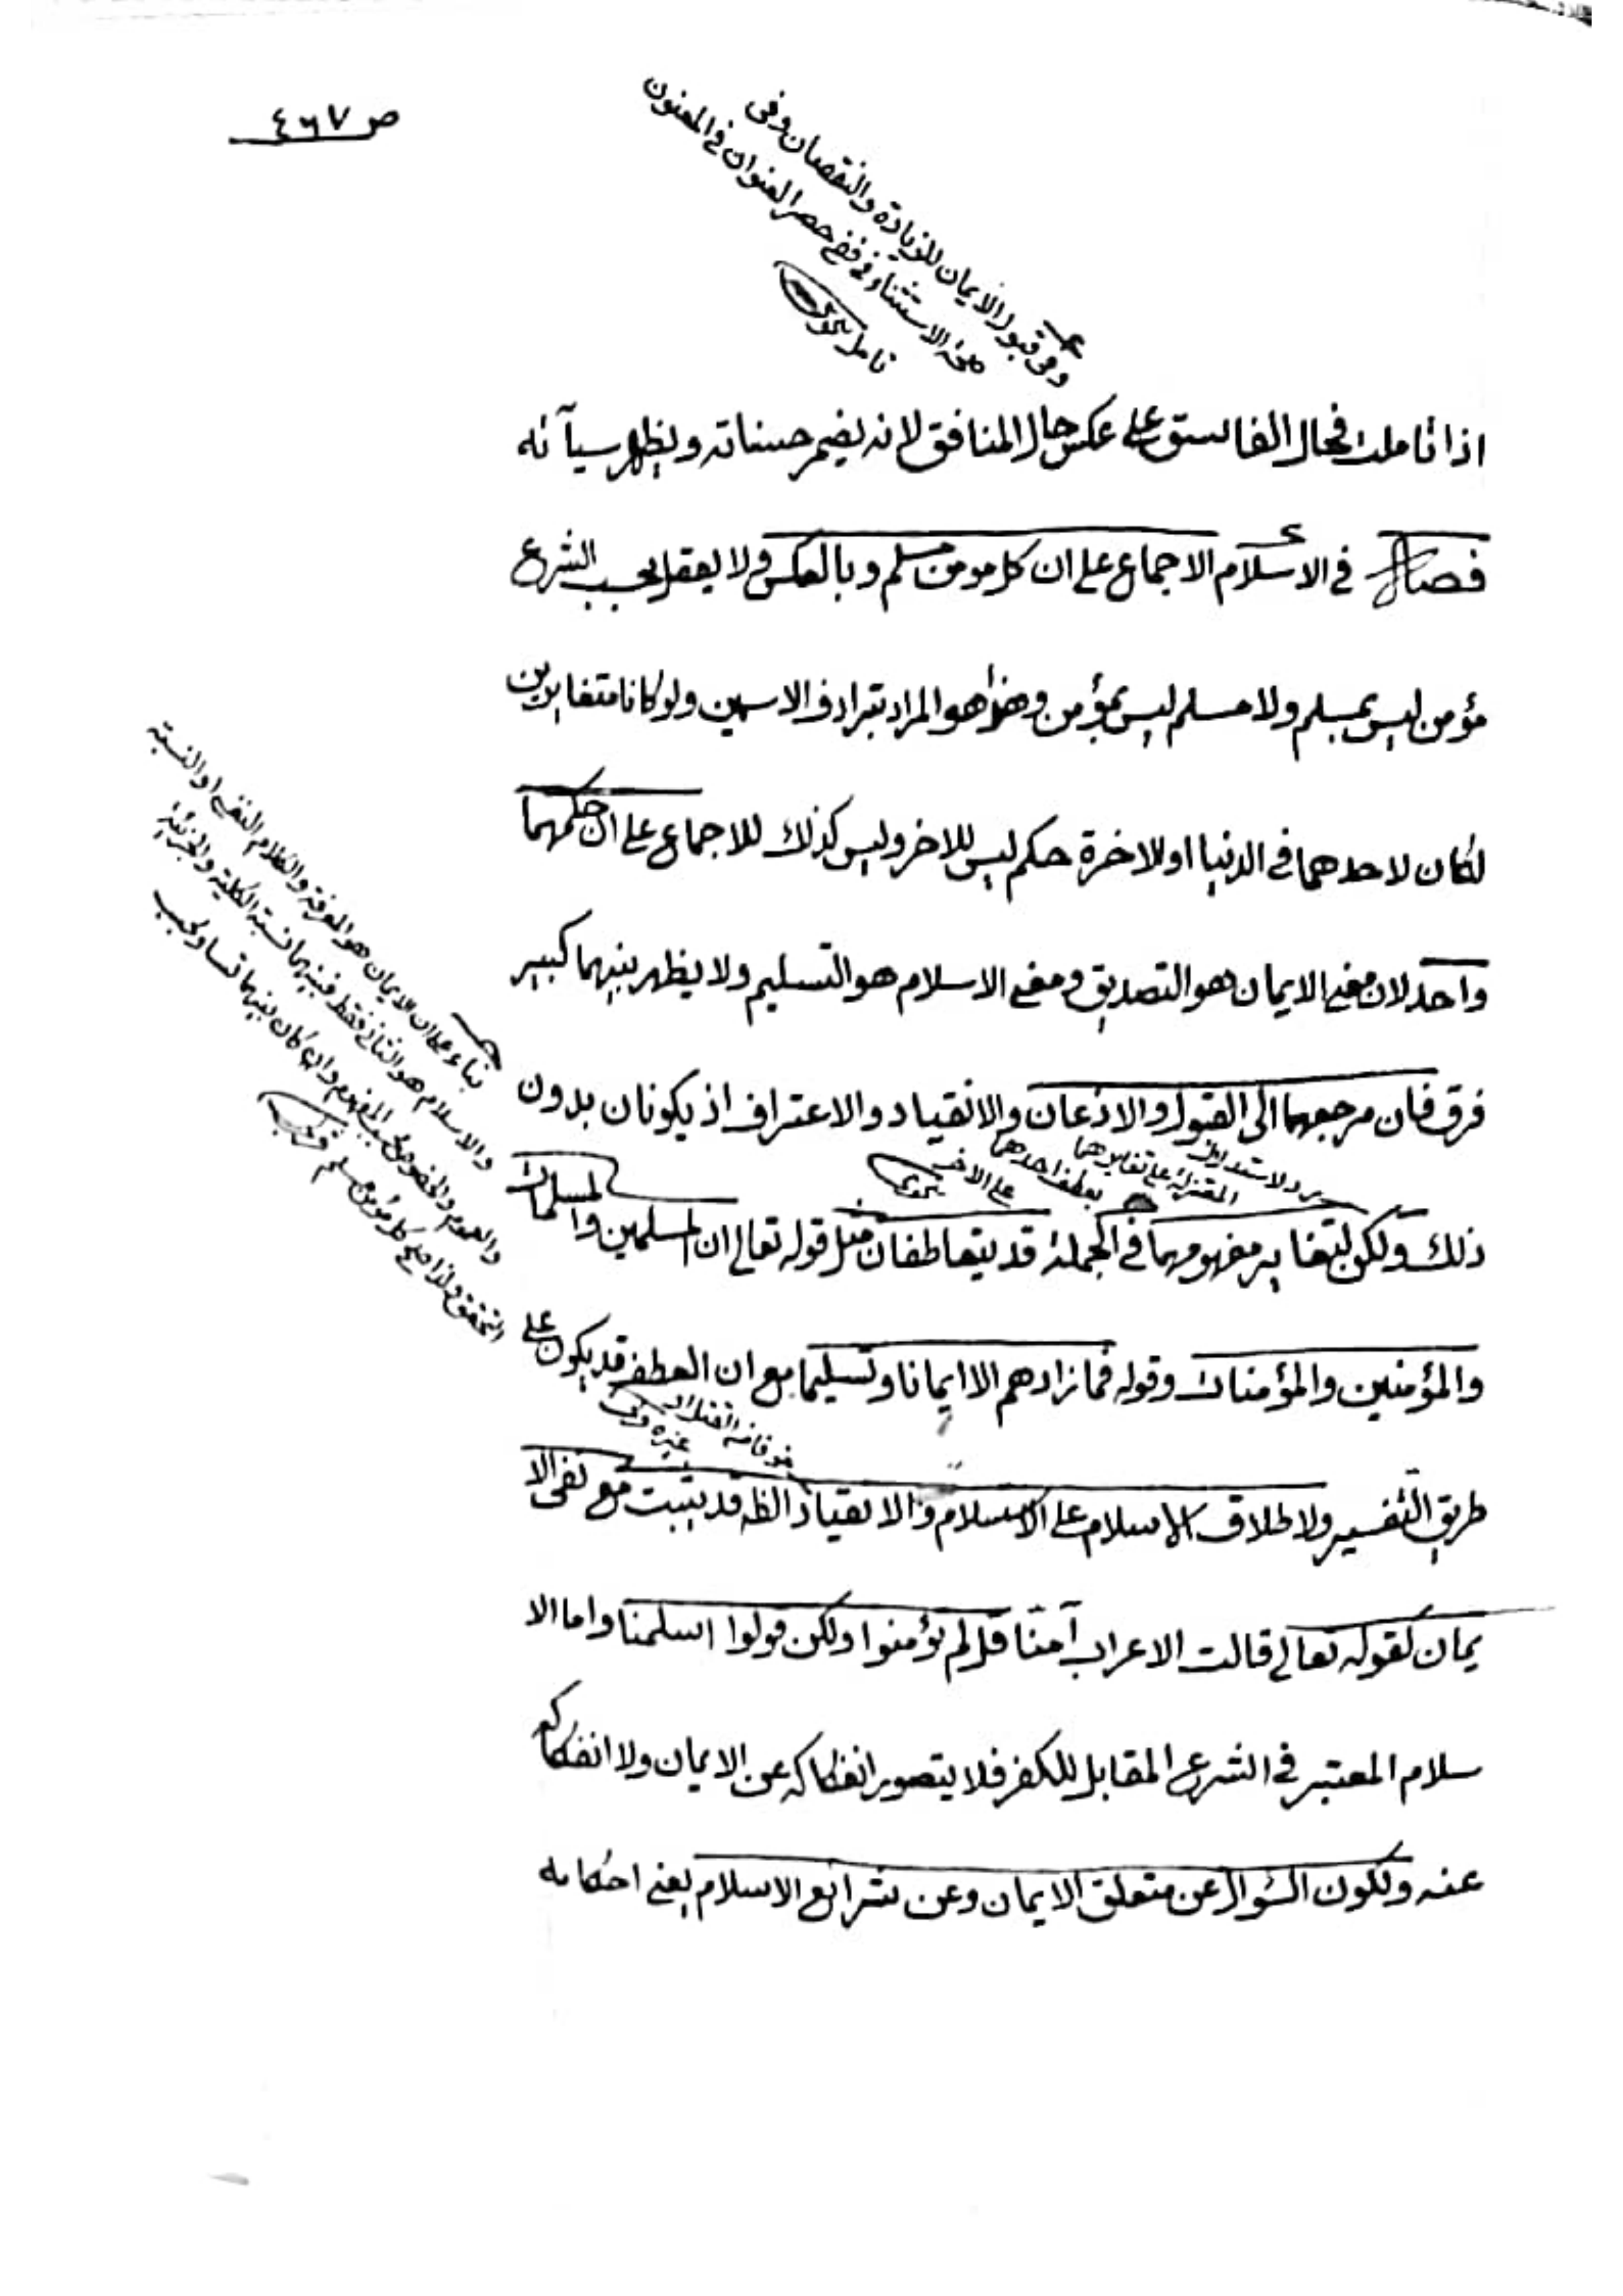 ص ٤٦٧
وفي قبول الايمان للزيادة والنقصان وفي
صحة الاستثناء في حصر العنوان في المعنون
تامل
اذا تاملت فحال الفاسق على عكس حال المنافق لانه يضمر حسناته ويظهر سيآته
فصل في الاسلام الاجماع على ان كل مومن مسلم وبالعكس ولا يعقل بحسب الشرع
مؤمن ليس بمسلم ولا مسلم ليس بمؤمن وهذا هو المراد بترادف الاسمين ولو كانا متغايرين
لكان لاحدهما في الدنيا او للاخرة حكم ليس للاخر وليس كذلك للاجماع على ان حكمهما
واحد لان معنى الايمان هو التصديق ومعنى الاسلام هو التسليم ولا يظهر بينهما كبير
فرق فان مرجعهما الى القبول والاذعان والانقياد والاعتراف اذ يكونان بدون
ذلك ولكن لتغاير مفهومهما في الجملة قد يتعاطفان مثل قوله تعالى ان المسلمين والمسلمات
والمؤمنين والمؤمنات وقوله فما زادهم الا ايمانا وتسليما مع ان العطف قد يكون على
طريق التفسير ولاطلاق الاسلام على الاستسلام والانقياد الظه قد يثبت مع نفى الا
يمان كقوله تعالى قالت الاعراب آمنا قل لم تؤمنوا ولكن قولوا اسلمنا واما الا
سلام المعتبر في الشرع المقابل للكفر فلا يتصور انفكاكه عن الايمان ولا انفكاكه
عنه ولكون السؤال عن متعلق الايمان وعن شرائع الاسلام يعنى احكامه
بناء على ان الايمان هو المعرفة والكلام النفسي او النسبة
والاسلام هو الثاني فقط فبينهما نسبة الكلية والجزئية
والعموم والخصوص بحسب المفهوم وان كان بينهما تساو بحسب
التحقق ولذا صح كل مؤمن مسلم
يرد لاستدلال
المعتزلة على تغايرهما
بعطف احدهما
على الاخر